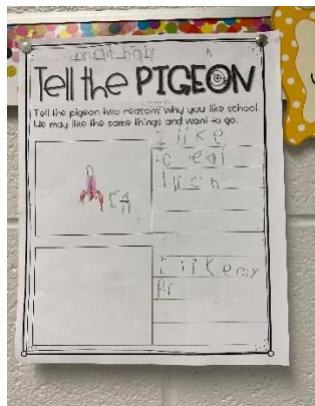 Tell the PIGEON
Tell the pigeon two reasons why you like school.
He may like the same things and want to go.
I like
to eat
I like my